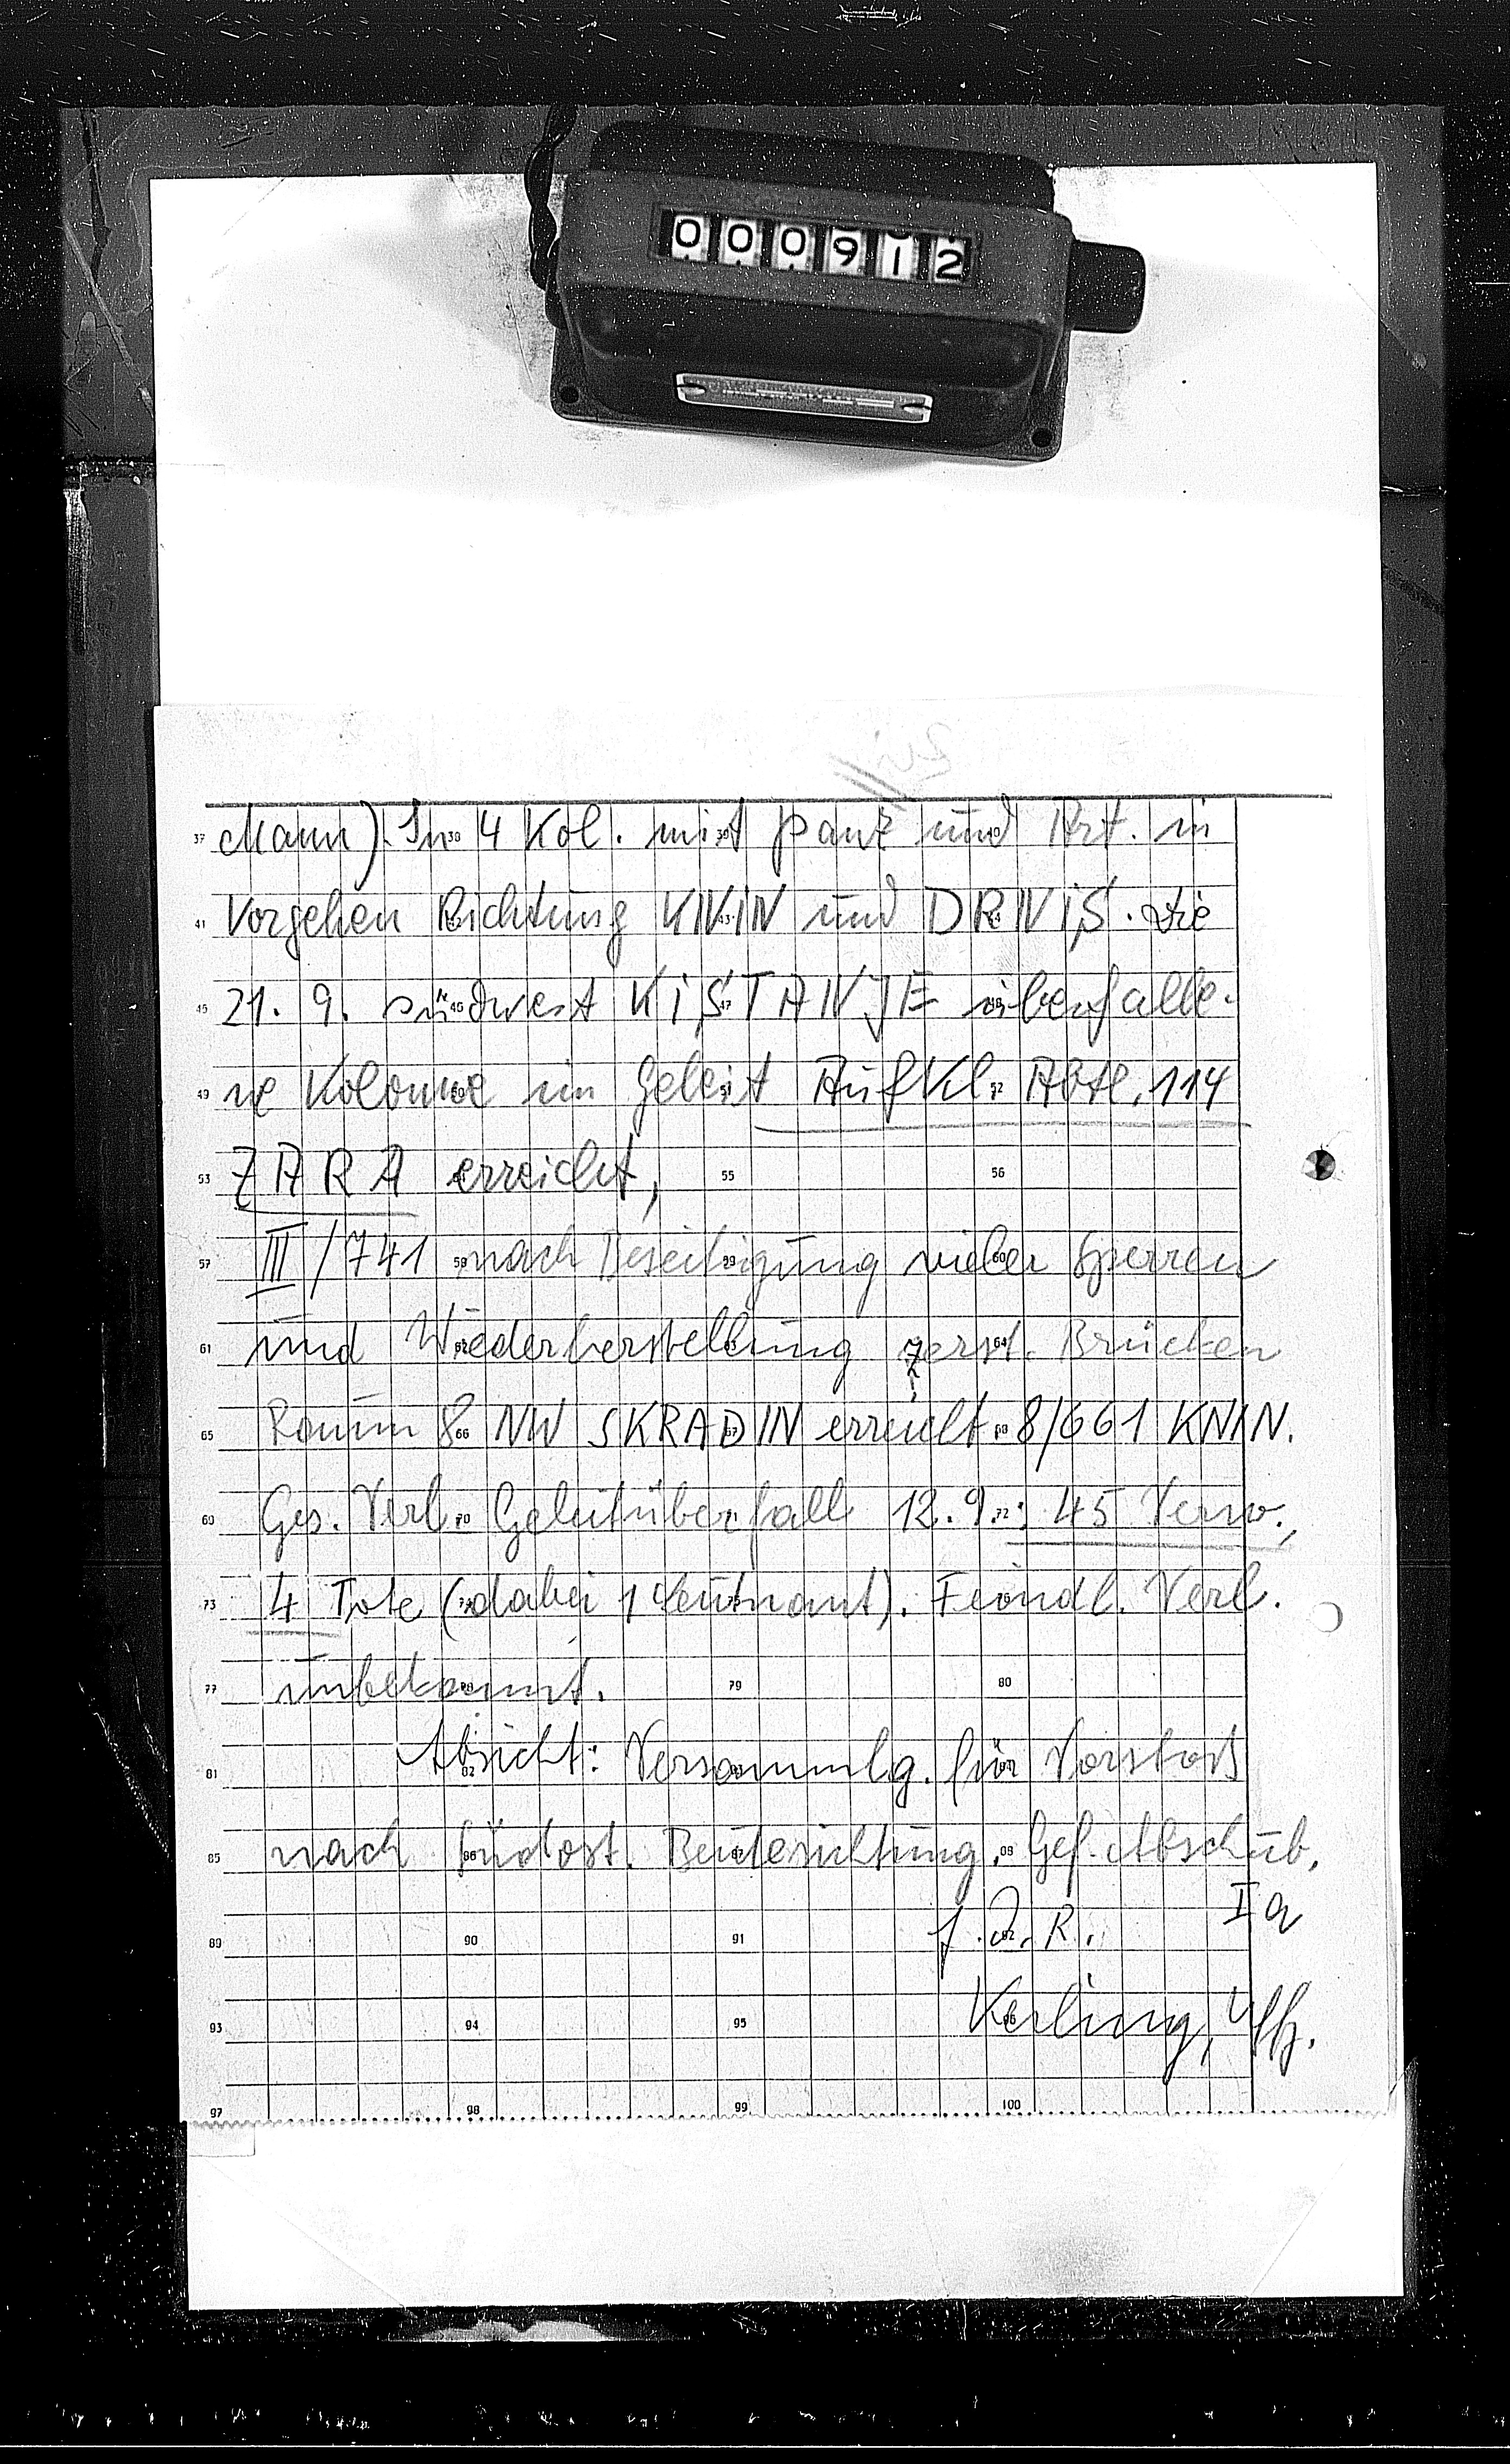 000912
37 Mann). In 38 4 Kol. mit 39 Panz und 40 Art. in
41 Vorgehen Richtung KNIN 43 und DRNIŠ. Die
45 21. 9. südwest KIŠTANJE 47 überfalle-
49 ne Kolonne im Geleit 51 Aufkl. 52 Abtl. 114
53 ZARA erreicht, 55 56
57 III/741 58 nach Beseitigung 59 vieler 60 Sperren
61 und Wiederherstellung zerst. 64 Brücken
65 Raum 8 66 NW SKRADIN 67 erreicht. 68 8/661 KNIN.
69 Ges. Verl. 70 Geleitüberfall 12.9. 72 : 45 Verw.,
73 4 Tote (dabei 1 Leutnant). Feindl. Verl.
77 unbekannt. 79 80
81 Absicht: 82 Versammlg. für Vorstoß
85 nach 86 Südost. Beutesichtung. 88 Gef. Abschub.
Ia
89 90 91 f. d. R.
93 94 95 Kerling, 96 Uffz.
97 98 99 100